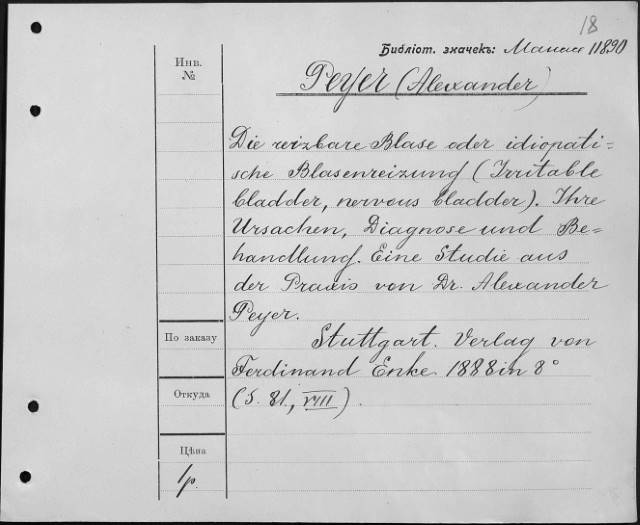 18
Библіот. значекъ: Манас 11890
Инв.
№
Peyer (Alexander)
Die reizbare Blase oder idiopati=
sche Blasenreizung (Irritable
bladder, nervous bladder). Ihre
Ursachen, Diagnose und Be=
handlung. Eine Studie aus
der Praxis von Dr. Alexander
Peyer.
Stuttgart. Verlag von
Ferdinand Enke 1888 in 8°
(S. 81, VIII).
По заказу
Откуда
Цѣна
1р.